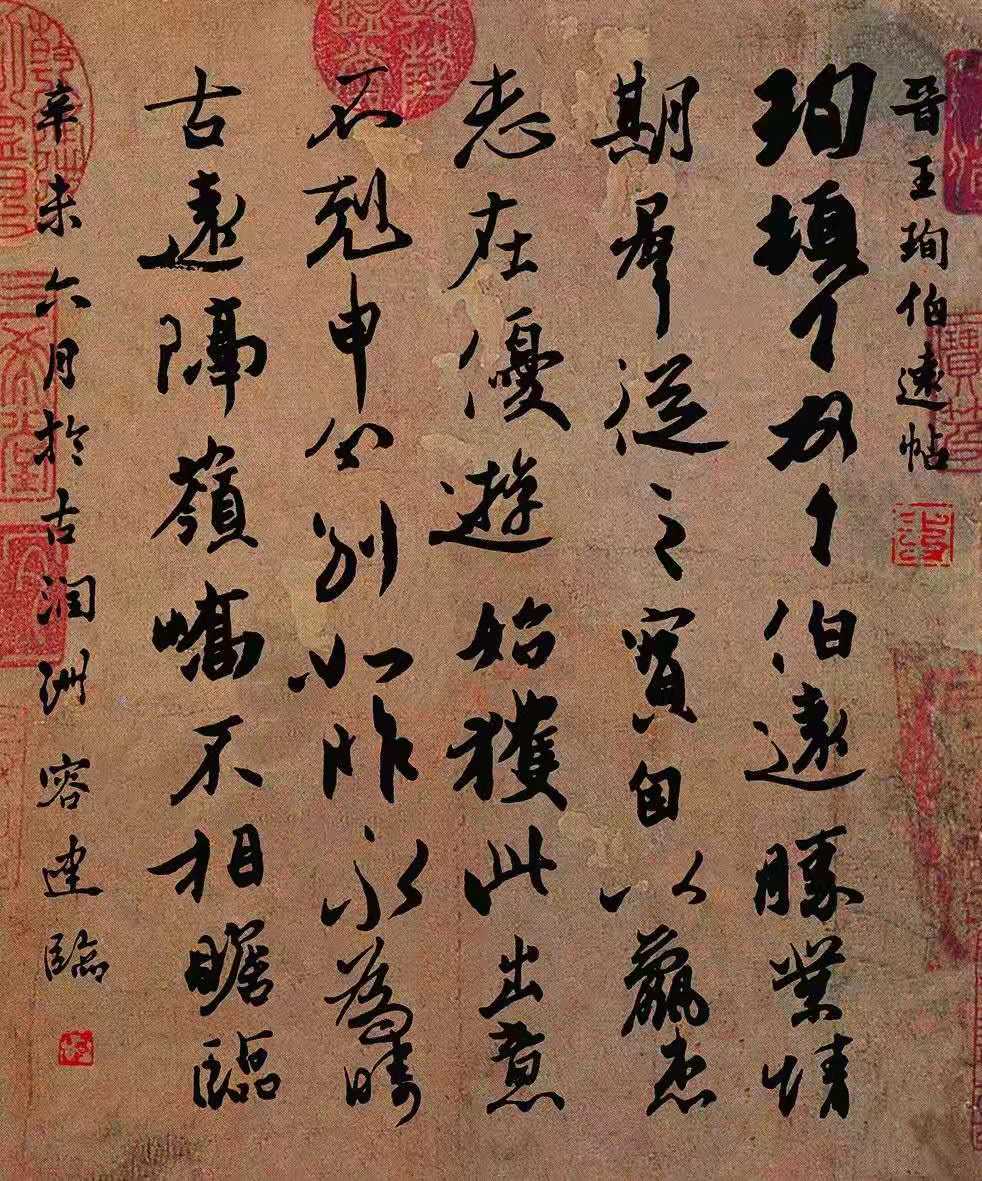 晉王珣伯遠帖
珣頓首頓首伯遠勝業情
期羣從之寶自以羸患
志在優遊始獲此出意
不剋申分別如昨永為疇
古遠隔嶺嶠不相瞻臨
辛未六月於古润洲 容建臨